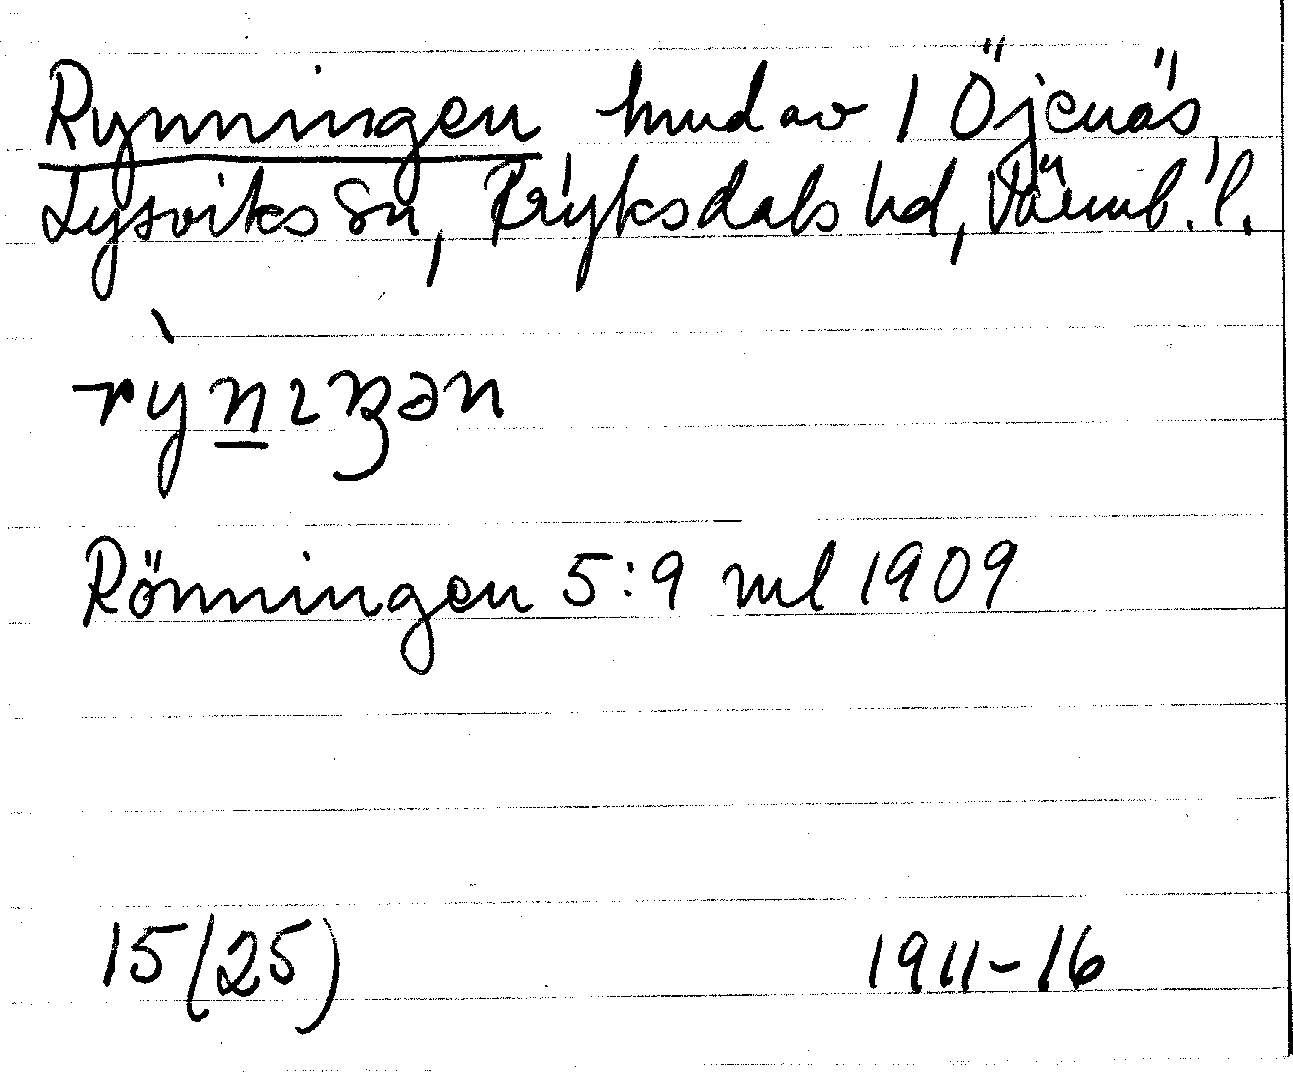 Rynningen hmd av 1 Öjenäs
Lysviks sn, Fryksdals hd, Värml. l.
rỳn̲ɪŋən
Rönningen 5:9 ml 1909
15(25) 1911-16